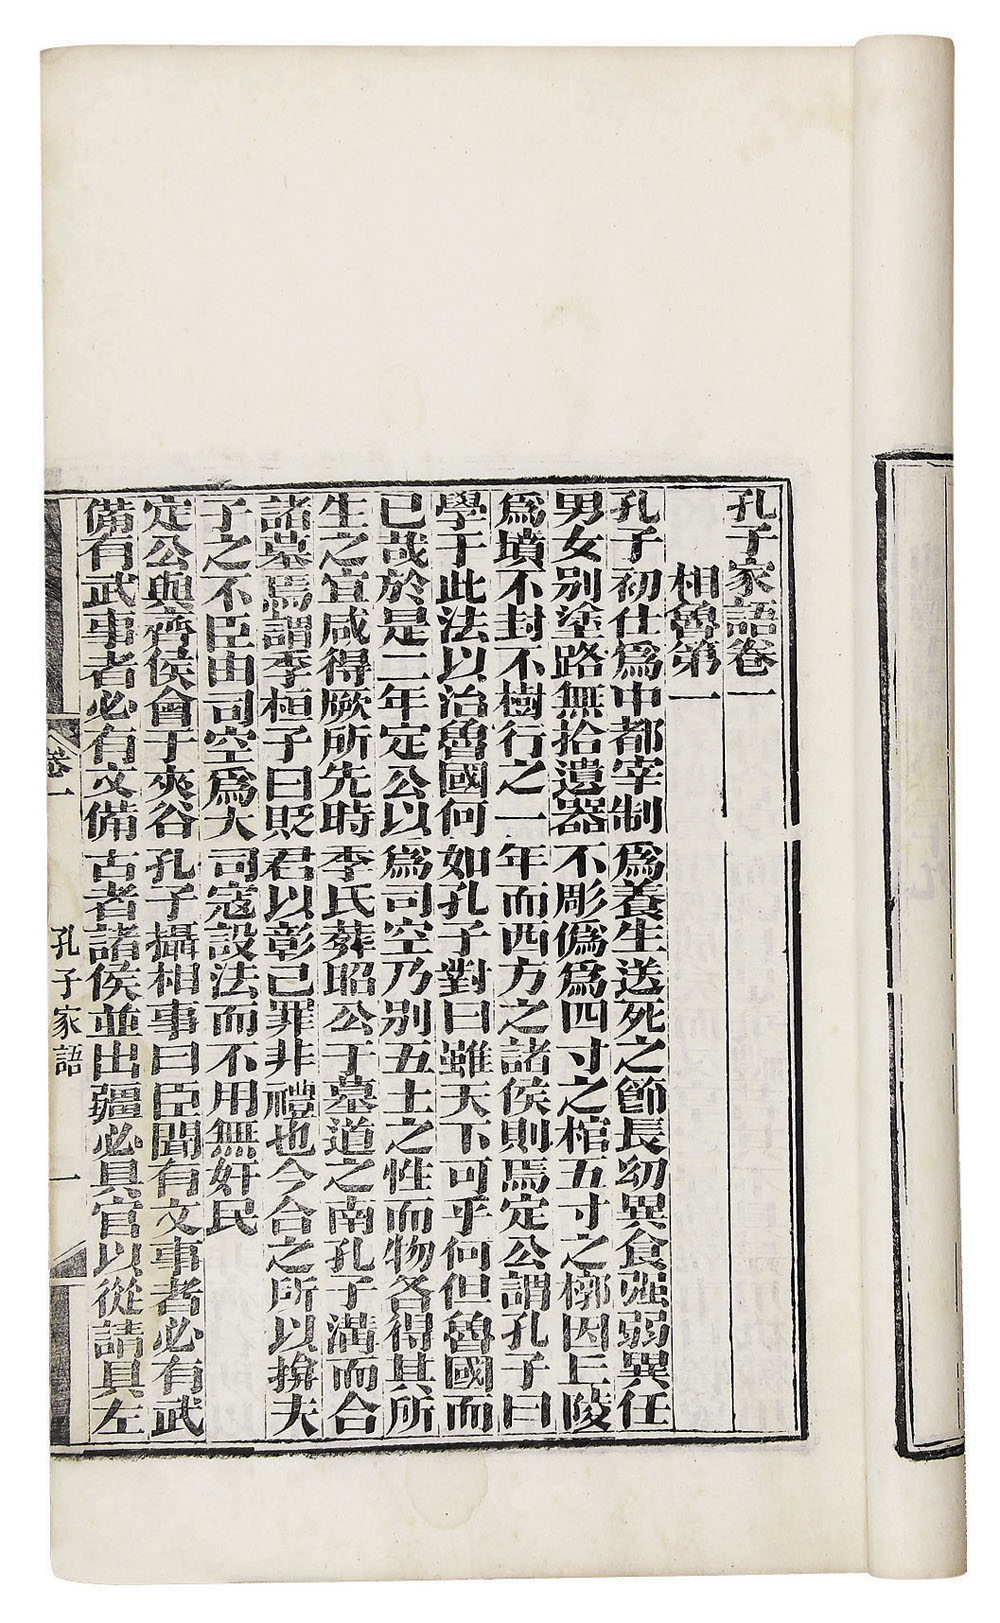 孔子家語卷一
相魯第一
孔子初仕爲中都宰制爲養生送死之節長幼異食强弱異任
男女別塗路無拾遺器不彫僞爲四寸之棺五寸之槨因丘陵
爲墳不封不樹行之一年而西方之諸侯則焉定公謂孔子曰
學于此法以治魯國何如孔子對曰雖天下可乎何但魯國而
已哉於是二年定公以爲司空乃別五土之性而物各得其所
生之宜咸得厥所先時季氏葬昭公于墓道之南孔子溝而合
諸墓焉謂季桓子曰貶君以彰己罪非禮也今合之所以揜夫
子之不臣由司空爲大司寇設法而不用無奸民
定公與齊侯會于夾谷孔子攝相事曰臣聞有文事者必有武
備有武事者必有文備古者諸侯並出疆必具官以從請具左
卷一
孔子家語
一